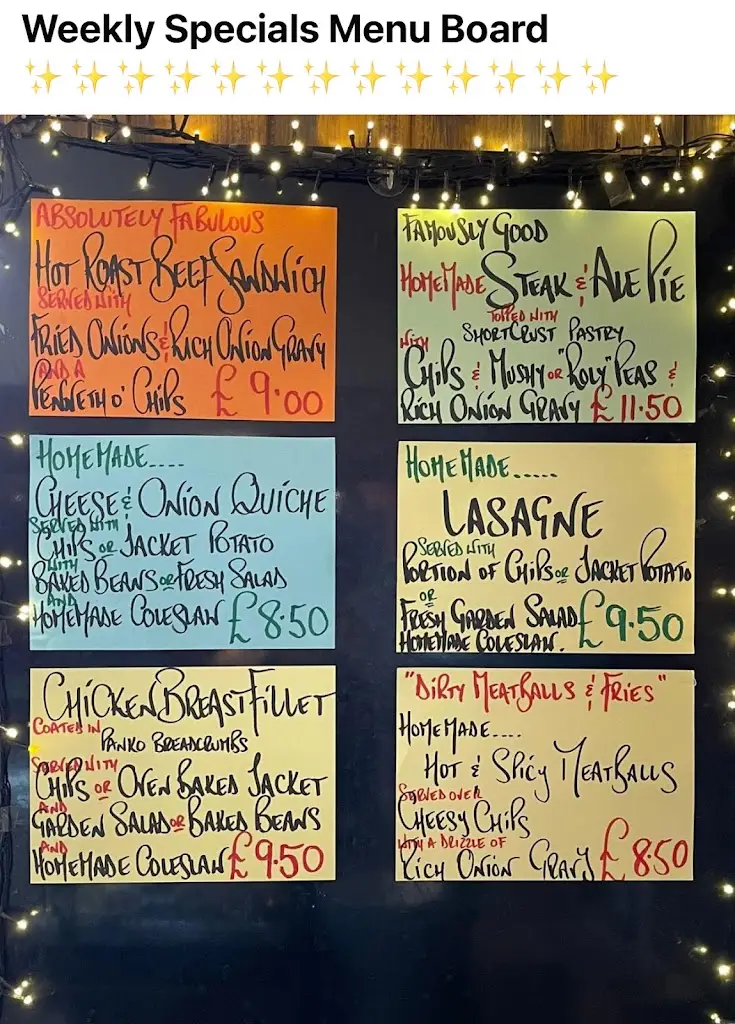 Weekly Specials Menu Board
✨✨✨✨✨✨✨✨✨✨✨✨✨
ABSOLUTELY FABULOUS
HOT ROAST BEEF SANDWICH
SERVED WITH
FRIED ONIONS & RICH ONION GRAVY
AND A
PENNETH O' CHIPS £9.00
FAMOUSLY GOOD
HOMEMADE STEAK & ALE PIE
TOPPED WITH
SHORTCRUST PASTRY
WITH
CHIPS & MUSHY OR "ROLY" PEAS &
RICH ONION GRAVY £11.50
HOMEMADE....
CHEESE & ONION QUICHE
SERVED WITH
CHIPS OR JACKET POTATO
WITH
BAKED BEANS OR FRESH SALAD
AND
HOMEMADE COLESLAW £8.50
HOMEMADE.....
LASAGNE
SERVED WITH
PORTION OF CHIPS OR JACKET POTATO
OR
FRESH GARDEN SALAD
HOMEMADE COLESLAW. £9.50
CHICKEN BREAST FILLET
COATED IN
PANKO BREADCRUMBS
SERVED WITH
CHIPS OR OVEN BAKED JACKET
AND
GARDEN SALAD OR BAKED BEANS
AND
HOMEMADE COLESLAW £9.50
"DIRTY MEATBALLS & FRIES"
HOMEMADE....
HOT & SPICY MEATBALLS
SERVED OVER
CHEESY CHIPS
WITH A DRIZZLE OF
RICH ONION GRAVY £8.50